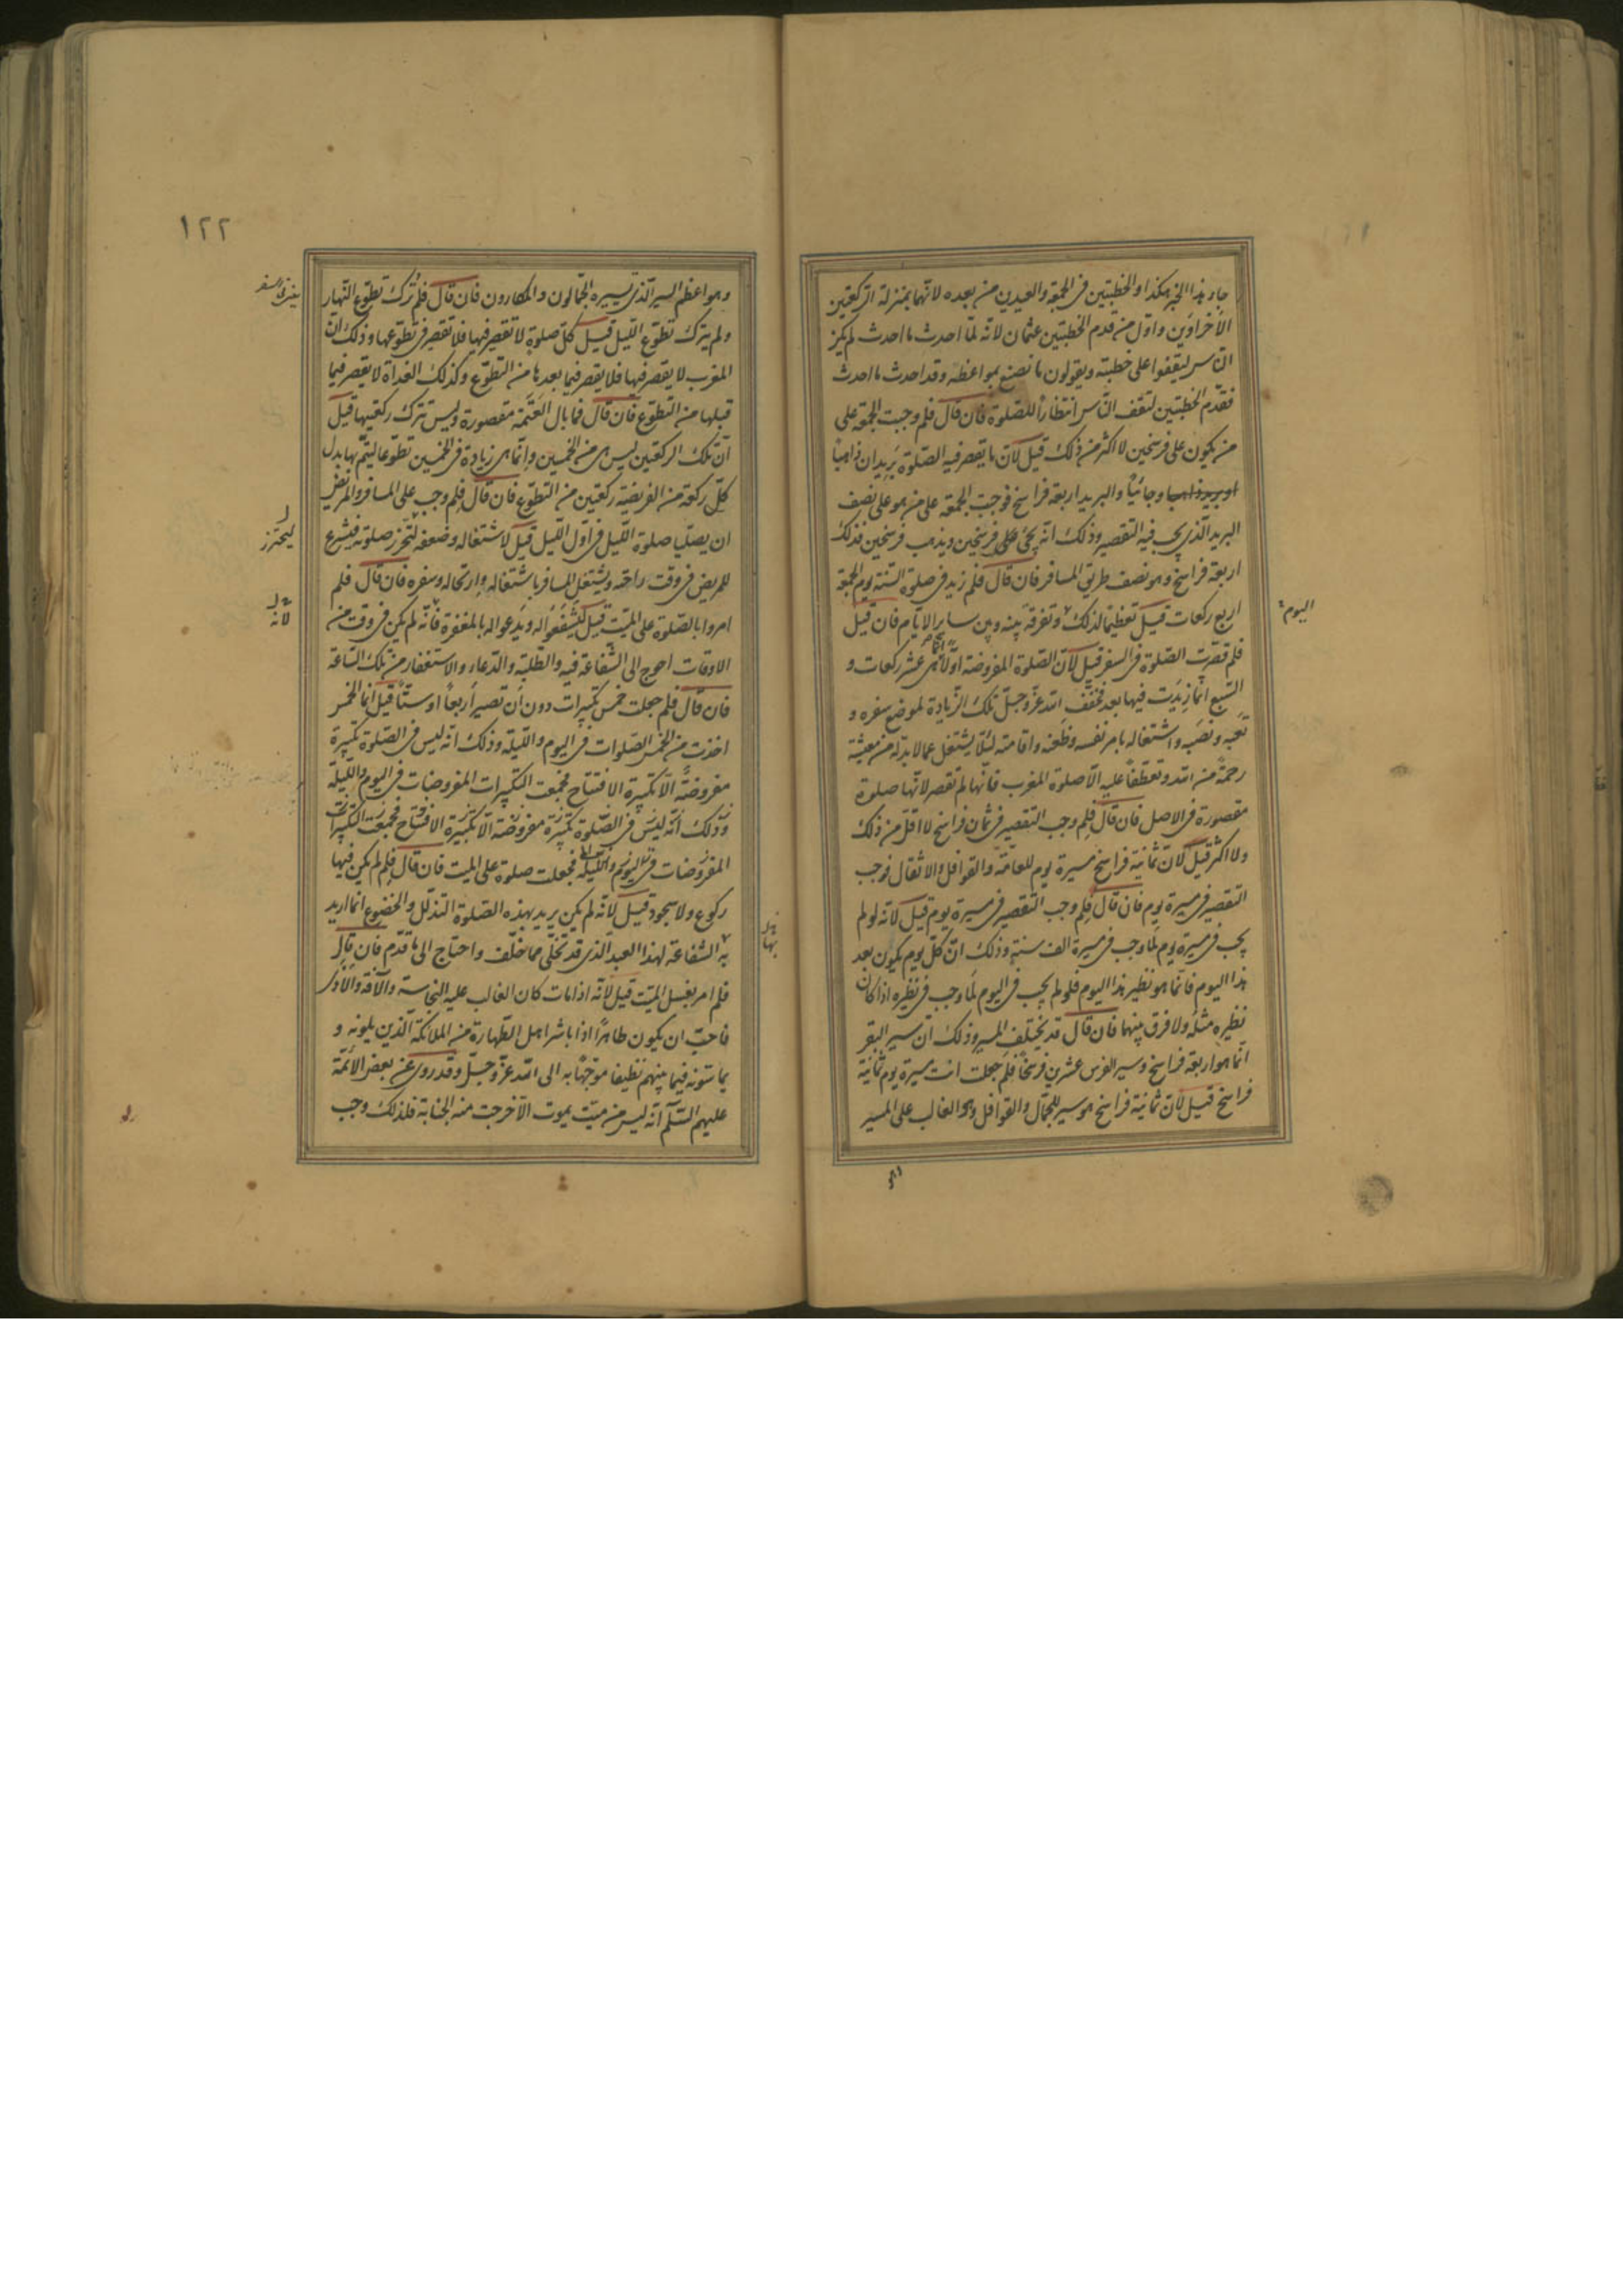 جاء هذا الخبر هكذا والخطبتين فى الجمعة والعيدين من بعده لانهما بمنزلة الركعتين
الاخراوين واول من قدم الخطبتين عثمان لانه لما احدث ما احدث لم يكن
الناس ليقفوا على خطبته ويقولون ما نصنع بمواعظه وقد احدث ما احدث
فقدم الخطبتين لتقف الناس انتظاراً للصلوة فان قال فلم وجبت الجمعة على
من يكون على فرسخين لا اكثر من ذلك قيل لان ما يقصر فيه الصلوة بريدان ذاهباً
او بريد ذاهبا وجائياً والبريد اربعة فراسخ فوجبت الجمعة على من هو على نصف
البريد الذى يجب فيه التقصير وذلك انه يجئ على فرسخين ويذهب فرسخين فذلك
اربعة فراسخ وهو نصف طريق المسافر فان قال فلم زيد فى صلوة السنة يوم الجمعة
اربع ركعات قيل تعظيما لذلك وتفرقة بينه وبين ساير الايام فان قيل
اليوم
فلم قصرت الصلوة فى السفر قيل لان الصلوة المفروضة اولا انما هى عشر ركعات و
السبع انما زيدت فيها بعد فخفف الله عز وجل تلك الزيادة لموضع سفره و
تعبه ونصبه واشتغاله بامر نفسه وظعنه واقامته لئلا يشتغل عما لا بد له من معيشة
رحمة من الله وتعطفاً عليه الا صلوة المغرب فانها لم تقصر لانها صلوة
مقصورة فى الاصل فان قال فلم وجب التقصير فى ثمان فراسخ لا اقل من ذلك
ولا اكثر قيل لان ثمانية فراسخ مسيرة يوم للعامة والقوافل والاثقال فوجب
التقصير فى مسيرة يوم فان قال فلم وجب التقصير فى مسيرة يوم قيل لانه لو لم
يجب فى مسيرة يوم لما وجب فى مسيرة الف سنة وذلك ان كل يوم يكون بعد
هذا اليوم فانما هو نظير هذا اليوم فلو لم يجب فى اليوم لما وجب فى نظيره اذا كان
نظيره مثله ولا فرق بينهما فان قال قد يختلف المسير وذلك ان سير البقر
انما هو اربعة فراسخ وسير الفرس عشرين فرسخاً فلم جعلت انت مسيرة يوم ثمانية
فراسخ قيل لان ثمانية فراسخ هو سير الجمال والقوافل وهو الغالب على المسير
وهو
١٢٢
وهو اعظم السير الذى يسيره الجمالون والمكارون فان قال فلم ترك تطوع النهار
ولم يترك تطوع الليل قيل كل صلوة لا تقصير فيها فلا تقصير فى تطوعها وذلك ان
المغرب لا يقصر فيها فلا يقصر فيما بعدها من التطوع وكذلك الغداة لا يقصر فيما
قبلها من التطوع فان قال فما بال العتمة مقصورة وليس تترك ركعتيها قيل
ان تلك الركعتين ليس هى من الخمسين وانما هى زيادة فى الخمسين تطوعا ليتم بها بدل
كل ركعة من الفريضة ركعتين من التطوع فان قال فلم وجب على المسافر والمريض
ان يصليا صلوة الليل فى اول الليل قيل لاشتغاله وضعفه لتحرز صلوته فيشرع
ليحترز
للمريض فى وقت راحته ويشتغل المسافر باشتغاله وارتحاله وسفره فان قال فلم
امروا بالصلوة على الميت قيل ليشفعوا له ويدعوا له بالمغفرة فانه لم يكن فى وقت من
لانه
الاوقات احوج الى الشفاعة فيه والطلبة والدعاء والاستغفار من تلك الساعة
فان قال فلم جعلت خمس تكبيرات دون ان تصير اربعاً او ستاً قيل انما الخمس
اخذت من الخمس الصلوات فى اليوم والليلة وذلك انه ليس فى الصلوة تكبيرة
مفروضة الا تكبيرة الافتتاح فجمعت التكبيرات المفروضات فى اليوم والليلة
وذلك انه ليس فى الصلوة تكبيرة مفروضة الا تكبيرة الافتتاح فجمعت التكبيرات
المفروضات فى اليوم والليلة فجعلت صلوة على الميت فان قال فلم لم يكن فيها
ركوع ولا سجود قيل لانه لم يكن يريد بهذه الصلوة التذلل والخضوع انما اريد
به الشفاعة لهذا العبد الذى قد تخلى مما خلف واحتاج الى ما قدم فان قال
بها
فلم امر بغسل الميت قيل لانه اذا مات كان الغالب عليه النجاسة والآفة والاذى
فاحب ان يكون طاهراً اذا باشر اهل الطهارة من الملائكة الذين يلونه و
يماسونه فيما بينهم نظيفا موجهاً به الى الله عز وجل وقد روى عن بعض الائمة
عليهم السلم انه ليس من ميت يموت الا خرجت منه الجنابة فلذلك وجب